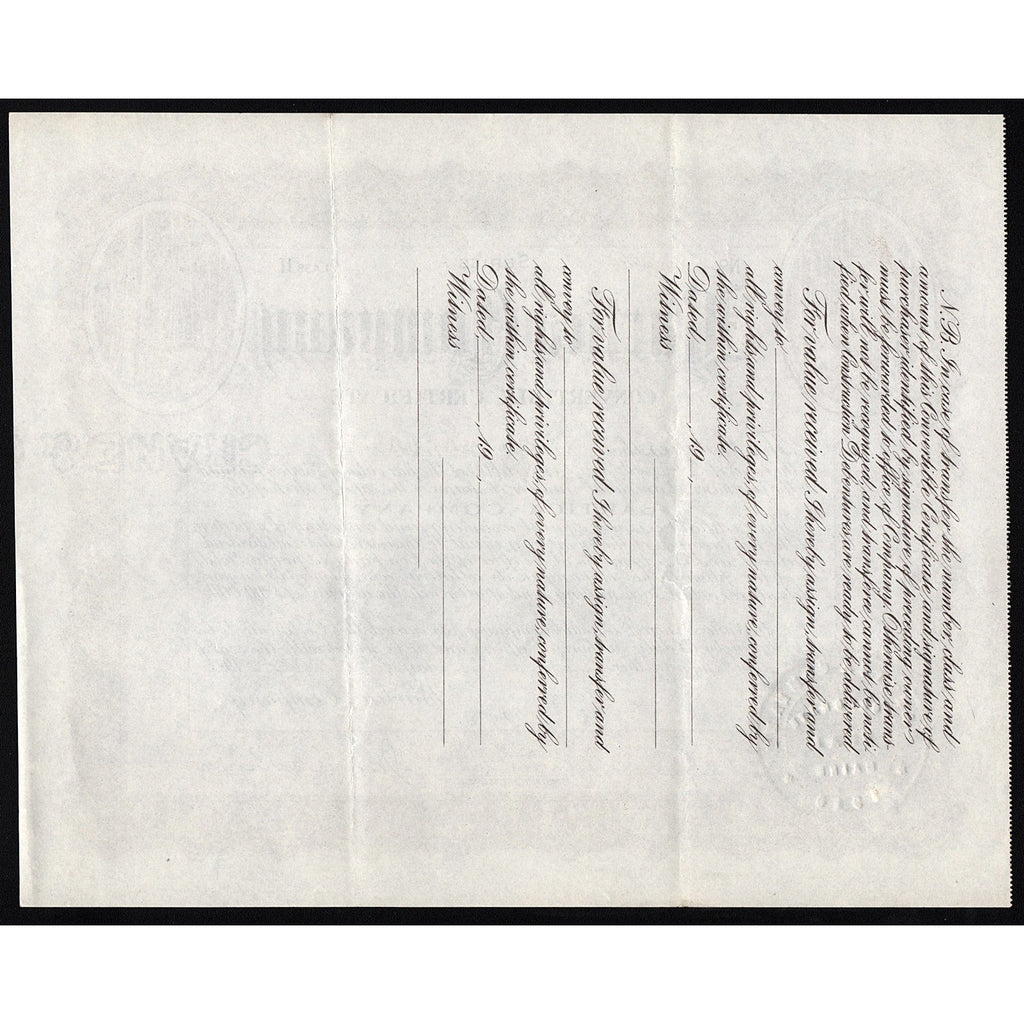 N.B. In case of transfer the number, class and
amount of this Convertible Certificate and signature of
purchaser identified by signature of preceding owner
must be forwarded to office of Company. Otherwise trans-
fer will not be recognized and transferee cannot be noti-
fied when Destination Debentures are ready to be delivered
For value received I hereby assign, transfer and
convey to
all rights and privileges of every nature, conferred by
the within certificate.
Dated , 19 ,
Witness
For value received I hereby assign, transfer and
convey to
all rights and privileges of every nature, conferred by
the within certificate.
Dated , 19 ,
Witness